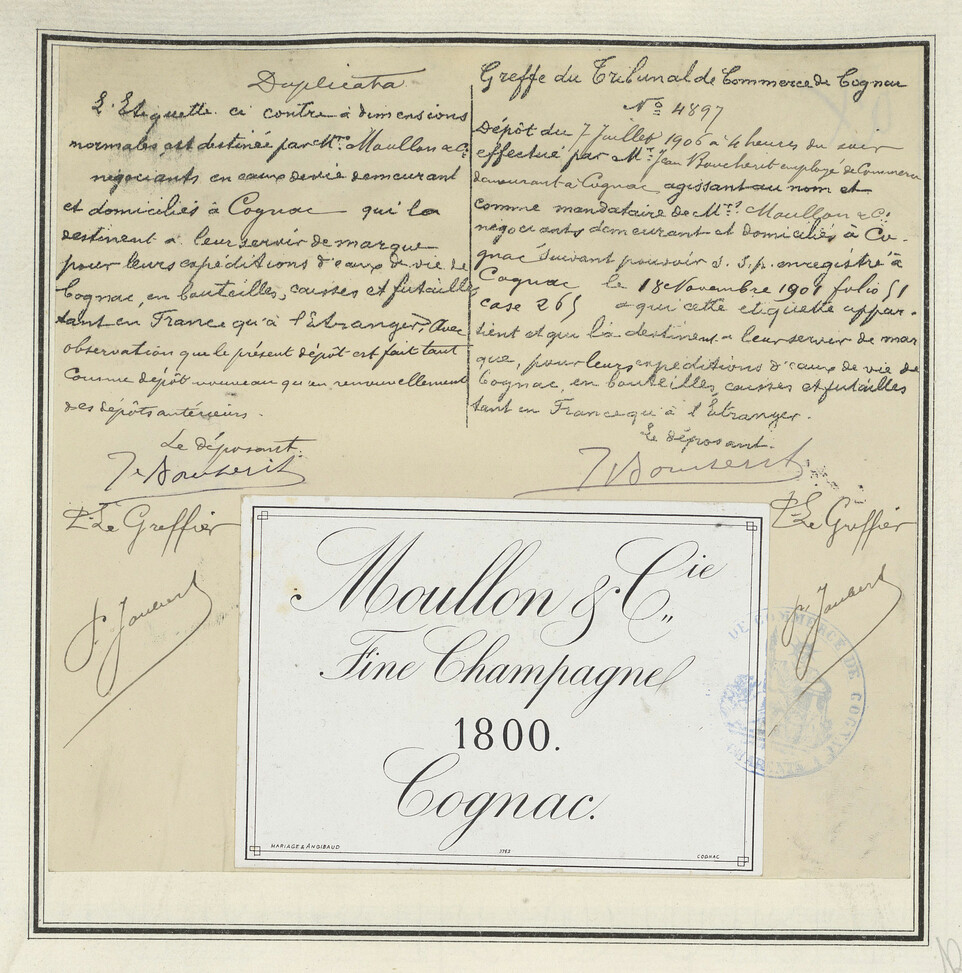 Duplicata
L'Etiquette ci contre à dimensions
normales est destinée par Mrs. Moullon & Cie
négociants en eaux de vie demeurant
et domiciliés à Cognac qui la
destinent a leur servir de marque
pour leurs expéditions d'eaux de vie de
Cognac, en bouteilles, caisses et futailles
tant en France qu'à l'Etranger, Avec
observation que le présent dépôt est fait tant
comme dépôt nouveau qu'en renouvellement
des dépôts antérieurs.
Le déposant.
P. Le Greffier
P. Joubert
Greffe du Tribunal de Commerce de Cognac
No 4897
Dépôt du 7 Juillet 1906 à 4 heures du soir
effectué par Mr. Jean Boucherit employé de Commerce
demeurant à Cognac agissant au nom et
comme mandataire de Mrs. Moullon & Cie
négociants demeurant et domiciliés à Co-
gnac Suivant pouvoir s. s. p. enregistré à
Cognac le 18 Novembre 1901 folio 51
case 265 a qui cette etiquette appar-
tient et qui la destinent a leur servir de mar
que, pour leurs expéditions d'eaux de vie de
Cognac, en bouteilles, caisses et futailles
tant en France qu'à l'Étranger.
Le déposant.
P. Le Greffier
P. Joubert
Moullon & Cie
Fine Champagne
1800.
Cognac.
MARIAGE & ANGIBAUD
COGNAC
DE COMMERCE DE COGNAC
CHARENTE